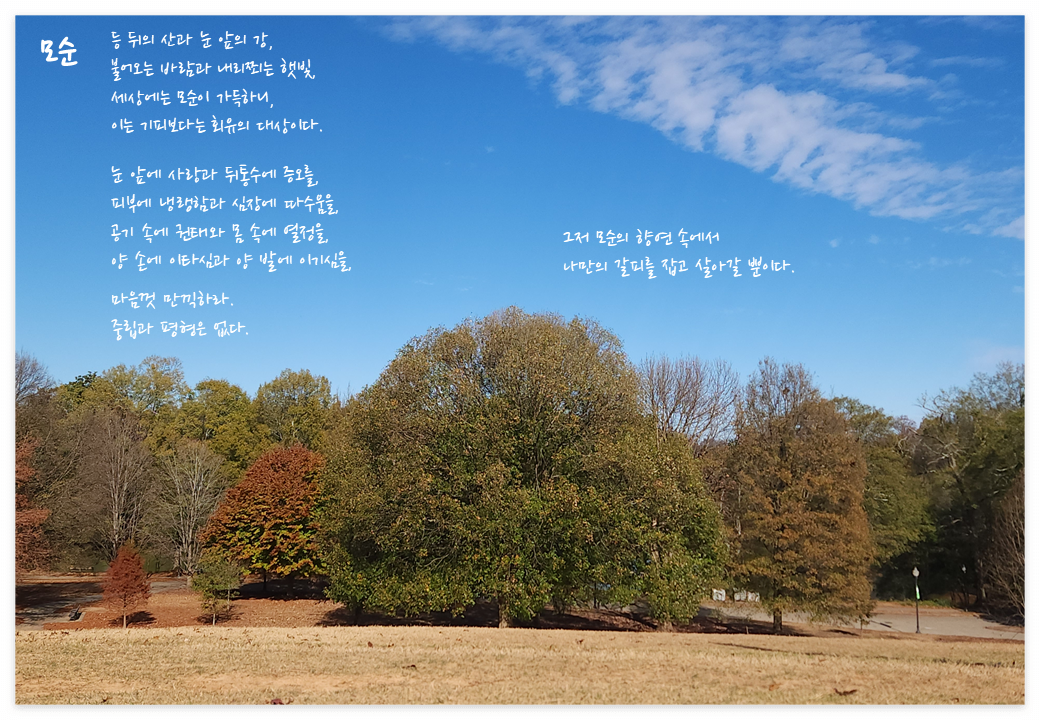 모순
등 뒤의 산과 눈 앞의 강,
불어오는 바람과 내리쬐는 햇빛,
세상에는 모순이 가득하니,
이는 기피보다는 회유의 대상이다.
눈 앞에 사랑과 뒤통수에 증오를,
피부에 냉랭함과 심장에 따수움을,
공기 속에 권태와 몸 속에 열정을,
양 손에 이타심과 양 발에 이기심을,
마음껏 만끽하라.
중립과 평형은 없다.
그저 모순의 향연 속에서
나만의 갈피를 잡고 살아갈 뿐이다.